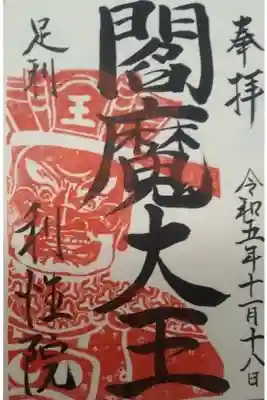 奉拝
令和五年十一月十八日
閻魔大王
王
足利 利性院